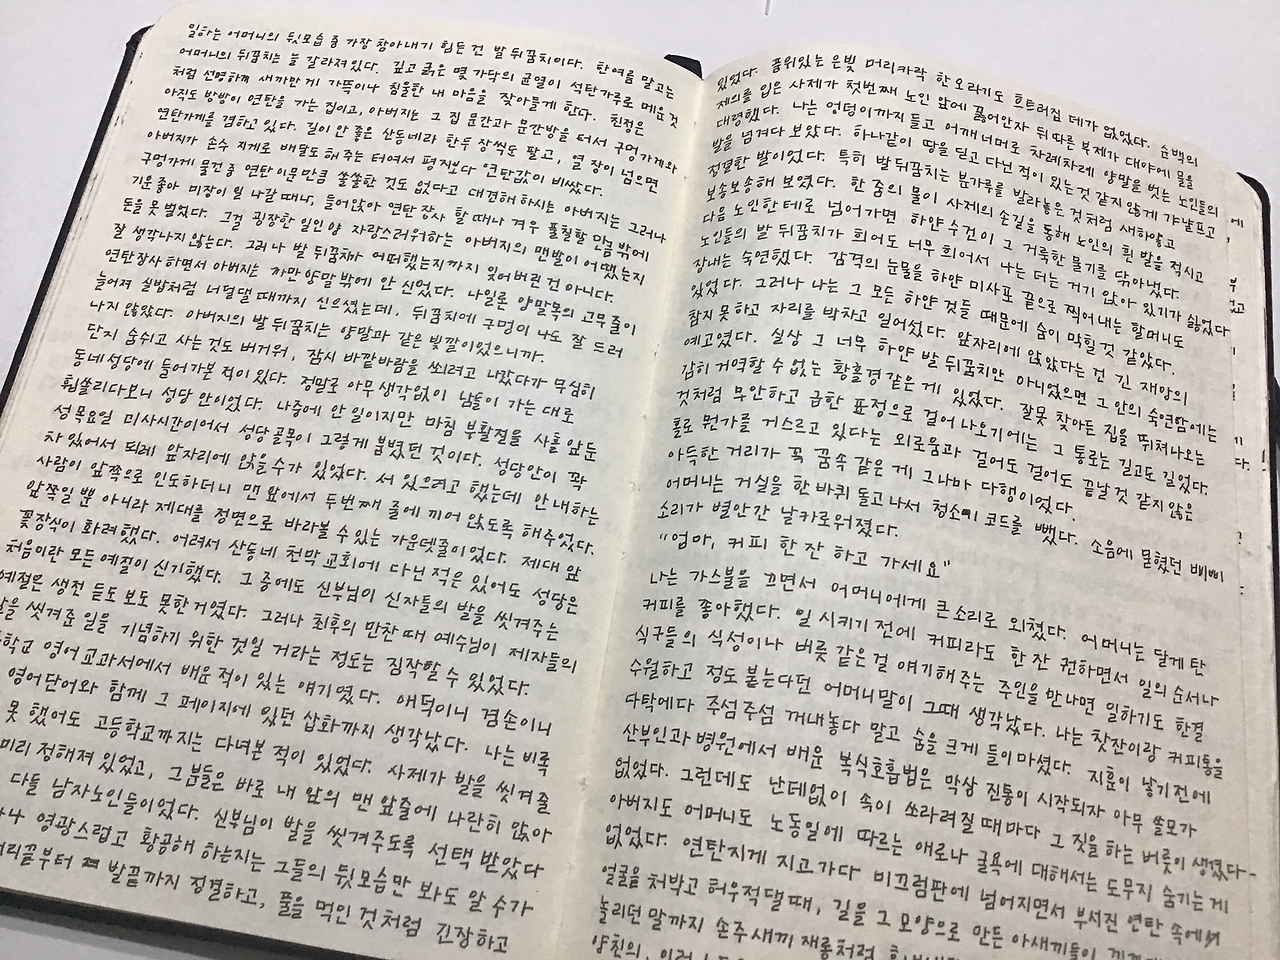 일하는 어머니의 뒷모습 중 가장 참아내기 힘든 건 발 뒤꿈치이다. 한여름 말고는
어머니의 뒤꿈치는 늘 갈라져있다. 깊고 굵은 몇 가닥의 균열이 석탄가루로 메운 것
처럼 선명하게 새까만 게 가뜩이나 침울한 내 마음을 잦아들게 한다. 친정은
아직도 방방이 연탄을 가는 집이고, 아버지는 그 집 문간과 문간방을 터서 구멍가게와
연탄가게를 겸하고 있다. 길이 안 좋은 산동네라 한두 장씩도 팔고, 열 장이 넘으면
아버지가 손수 지게로 배달도 해 주는 터여서 평지보다 연탄값이 비쌌다.
구멍가게 물건 중 연탄 이문만큼 쏠쏠한 것도 없다고 대견해 하시는 아버지는 그러나
기운 좋아 미장이 일 나갈 때나, 들어앉아 연탄 장사 할 때나 겨우 풀칠할 만큼 밖에
돈을 못 벌었다. 그걸 굉장한 일인양 자랑스러워하는 아버지의 맨발이 어땠는지
잘 생각나지 않는다. 그러나 발 뒤꿈치가 어떠했는지까지 잊어버린 건 아니다.
연탄장사 하면서 아버지는 까만 양말 밖에 안 신었다. 나일론 양말목의 고무줄이
늘어져 실밥처럼 너덜댈 때까지 신으셨는데, 뒤꿈치에 구멍이 나도 잘 드러
나지 않았다. 아버지의 발 뒤꿈치는 양말과 같은 빛깔이었으니까.
단지 숨쉬고 사는 것도 버거워, 잠시 바깥바람을 쐬려고 나왔다가 무심히
동네 성당에 들어가본 적이 있다. 정말로 아무 생각없이 남들이 가는 대로
휩쓸리다보니 성당 안이었다. 나중에 안 일이지만 마침 부활절을 사흘 앞둔
성목요일 미사시간이어서 성당골목이 그렇게 붐볐던 것이다. 성당안이 꽉
차 있어서 되레 앞자리에 앉을 수가 있었다. 서 있으려고 했는데 안내하는
사람이 앞쪽으로 인도하더니 맨 앞에서 두번째 줄에 끼어 앉도록 해주었다.
앞쪽일 뿐 아니라 제대를 정면으로 바라볼 수 있는 가운뎃줄이었다. 제대 앞
꽃장식이 화려했다. 어려서 산동네 천막 교회에 다닌 적은 있어도 성당은
처음이란 모든 예절이 신기했다. 그 중에도 신부님이 신자들의 발을 씻겨주는
예절은 생전 듣도 보도 못한 거였다. 그러나 최후의 만찬 때 예수님이 제자들의
발을 씻겨준 일을 기념하기 위한 것일 거라는 정도는 짐작할 수 있었다.
학교 영어 교과서에서 배운 적이 있는 얘기였다. 애덕이니 겸손이니
영어단어와 함께 그 페이지에 있던 삽화까지 생각났다. 나는 비록
못 했어도 고등학교까지는 다녀본 적이 있었다. 사제가 발을 씻겨줄
미리 정해져 있었고, 그분들은 바로 내 앞의 맨 앞줄에 나란히 앉아
다들 남자노인들이었다. 신부님이 발을 씻겨주도록 선택 받았다
영광스럽고 황공해 하는지는 그들의 뒷모습만 봐도 알 수가
끝부터 발끝까지 정결하고, 풀을 먹인 것처럼 긴장하고
있었다. 품위있는 은빛 머리카락 한 오라기도 흐트러짐 데가 없었다. 순백의
제의를 입은 사제가 첫번째 노인 앞에 꿇어안자 뒤따른 복제가 대야에 물을
대령했다. 나는 엉덩이까지 들고 어깨너머로 차례차례 양말을 벗는 노인들의
발을 넘겨다 보았다. 하나같이 땅을 딛고 다닌 적이 있는 것 같지 않게 갸냘프고
정결한 발이었다. 특히 발뒤꿈치는 분가루를 발라놓은 것처럼 새하얗고
보송보송해 보였다. 한 줌의 물이 사제의 손길을 통해 노인의 흰 발을 적시고
다음 노인한테로 넘어가면 하얀 수건이 그 거룩한 물기를 닦아냈다.
노인들의 발 뒤꿈치가 희어도 너무 희어서 나는 더는 거기 앉아 있기가 싫었다
장내는 숙연했다. 감격의 눈물을 하얀 미사포 끝으로 찍어내는 할머니도
있었다. 그러나 나는 그 모든 하얀 것들 때문에 숨이 막힐 것 같았다.
참지 못하고 자리를 박차고 일어섰다. 앞자리에 앉았다는 건 긴 재앙의
예고였다. 실상 그 너무 하얀 발 뒤꿈치만 아니었으면 그 안의 숙연함에는
감히 거역할 수 없는 황홀경 같은 게 있었다. 잘못 찾아든 집을 뛰쳐나오는
것처럼 무안하고 급한 표정으로 걸어 나오기에는 그 통로는 길고도 길었다.
홀로 뭔가를 거스르고 있다는 외로움과 걸어도 걸어도 끝날 것 같지 않은
아득한 거리가 꼭 꿈속 같은 게 그나마 다행이었다.
어머니는 거실을 한 바퀴 돌고 나서 청소기 코드를 뺐다. 소음에 묻혔던 삐삐
소리가 별안간 날카로워졌다.
"엄마, 커피 한 잔 하고 가세요"
나는 가스불을 끄면서 어머니에게 큰소리로 외쳤다. 어머니는 달게 탄
커피를 좋아했다. 일 시키기 전에 커피라도 한 잔 권하면서 일의 순서나
식구들의 식성이나 버릇 같은 걸 얘기해주는 주인을 만나면 일하기도 한결
수월하고 정도 붙는다던 어머니말이 그때 생각났다. 나는 찻잔이랑 커피통을
다탁에다 주섬주섬 꺼내놓다 말고 숨을 크게 들이마셨다. 지훈이 낳기 전에
산부인과 병원에서 배운 복식호흡법은 막상 진통이 시작되자 아무 쓸모가
없었다. 그런데도 난데없이 속이 쓰라려질 때마다 그 짓을 하는 버릇이 생겼다
아버지도 어머니도 노동일에 따르는 애로나 굴욕에 대해서는 도무지 숨기는 게
없었다. 연탄지게 지고 가다 비끄럼판에 넘어지면서 부서진 연탄 속에
얼굴을 처박고 허우적댈 때, 길을 그 모양으로 만든 아새끼들이
놀리던 말까지 손주새끼 재롱처럼
양친의,